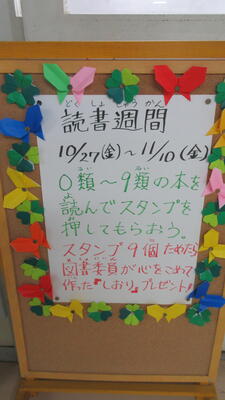 どく しょ しゅう かん
読書週間
10/27(金)～11/10(金)
0類～9類の本を
読んでスタンプを
押してもらおう。
スタンプ9個ためたら
図書委員が心をこめて
作った『しおり』プレゼント!